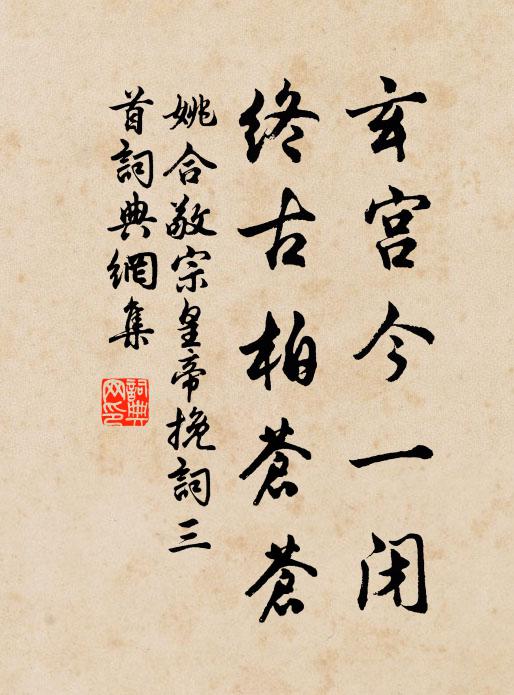 玄宫今一闭
终古柏苍苍
姚合敬宗皇帝挽詞三
首詞典網集
詞典
网印